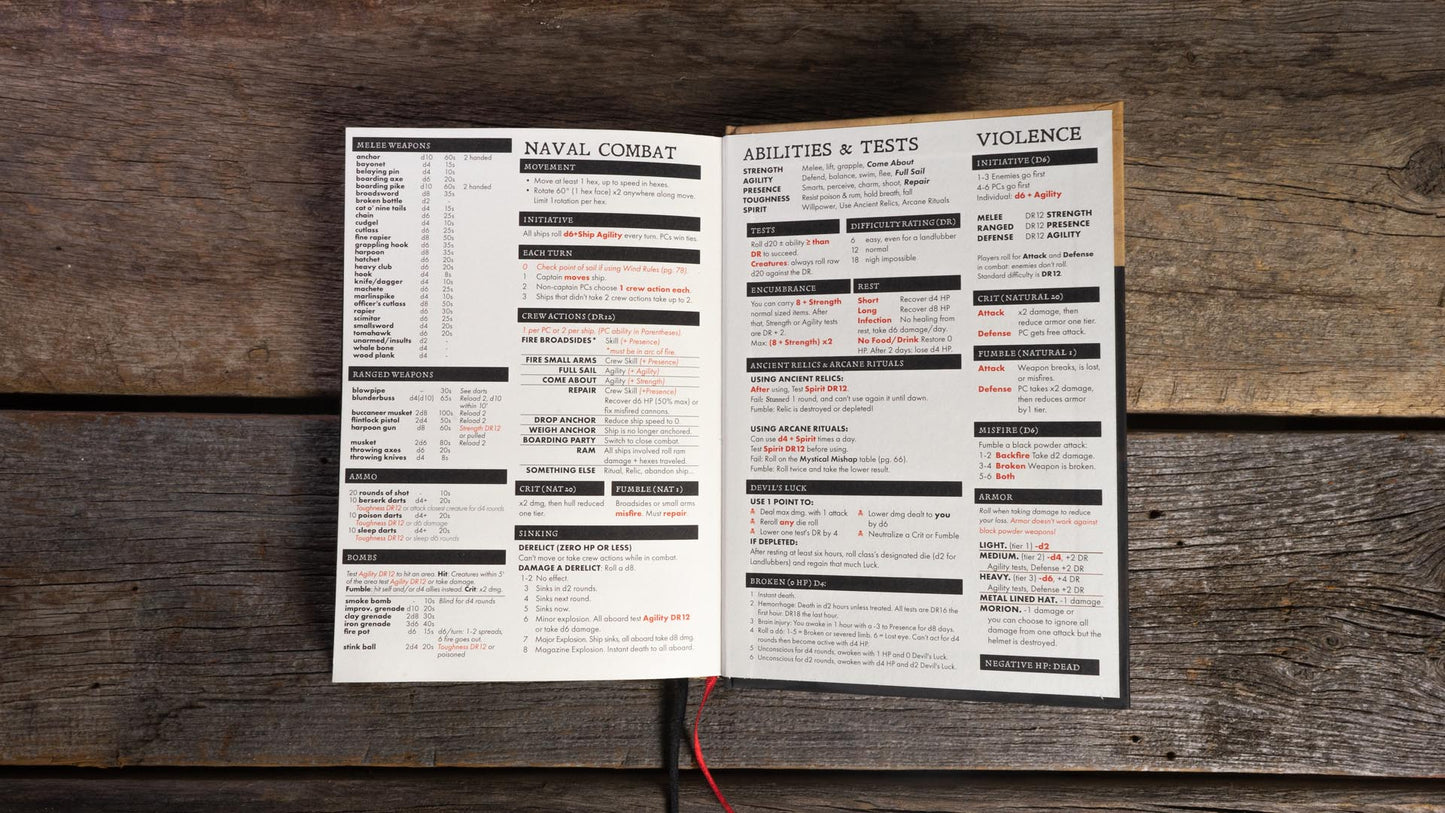 MELEE WEAPONS
anchor d10 60s 2 handed
bayonet d4 15s
belaying pin d4 10s
boarding axe d6 20s
boarding pike d10 60s 2 handed
broadsword d8 35s
broken bottle d2 -
cat o' nine tails d4 15s
chain d6 25s
cudgel d4 10s
cutlass d6 25s
fine rapier d8 50s
grappling hook d6 35s
harpoon d8 35s
hatchet d6 20s
heavy club d6 20s
hook d4 8s
knife/dagger d4 10s
machete d6 25s
marlinspike d4 10s
officer's cutlass d8 50s
rapier d6 30s
scimitar d6 25s
smallsword d4 20s
tomahawk d6 20s
unarmed/insults d2 -
whale bone d4 -
wood plank d4 -
RANGED WEAPONS
blowpipe - 30s See darts
blunderbuss d4(d10) 65s Reload 2, d10
within 10'
buccaneer musket 2d8 100s Reload 2
flintlock pistol 2d4 50s Reload 2
harpoon gun d8 60s Strength DR12
or pulled
musket 2d6 80s Reload 2
throwing axes d6 20s
throwing knives d4 8s
AMMO
20 rounds of shot - 10s
10 berserk darts d4+ 20s
Toughness DR12 or attack closest creature for d4 rounds
10 poison darts d4+ 20s
Toughness DR12 or d6 damage
10 sleep darts d4+ 20s
Toughness DR12 or sleep d6 rounds
BOMBS
Test Agility DR12 to hit an area. Hit: Creatures within 5'
of the area test Agility DR12 or take damage.
Fumble: hit self and/or d4 allies instead. Crit: x2 dmg.
smoke bomb 10s Blind for d4 rounds
improv. grenade d10 20s
clay grenade 2d8 30s
iron grenade 3d6 40s
fire pot d6 15s d6/turn: 1-2 spreads,
6 fire goes out.
stink ball 2d4 20s Toughness DR12 or
poisoned
NAVAL COMBAT
MOVEMENT
• Move at least 1 hex, up to speed in hexes.
• Rotate 60° (1 hex face) x2 anywhere along move.
Limit 1rotation per hex.
INITIATIVE
All ships roll d6+Ship Agility every turn. PCs win ties.
EACH TURN
0 Check point of sail if using Wind Rules (pg. 78).
1 Captain moves ship.
2 Non-captain PCs choose 1 crew action each.
3 Ships that didn't take 2 crew actions take up to 2.
CREW ACTIONS (DR12)
1 per PC or 2 per ship. (PC ability in Parentheses).
FIRE BROADSIDES* Skill (+ Presence)
*must be in arc of fire.
FIRE SMALL ARMS Crew Skill (+ Presence)
FULL SAIL Agility (+ Agility)
COME ABOUT Agility (+ Strength)
REPAIR Crew Skill (+Presence)
Recover d6 HP (50% max) or
fix misfired cannons.
DROP ANCHOR Reduce ship speed to 0.
WEIGH ANCHOR Ship is no longer anchored.
BOARDING PARTY Switch to close combat.
RAM All ships involved roll ram
damage + hexes traveled.
SOMETHING ELSE Ritual, Relic, abandon ship...
CRIT (NAT 20)
x2 dmg, then hull reduced
one tier.
FUMBLE (NAT 1)
Broadsides or small arms
misfire. Must repair.
SINKING
DERELICT (ZERO HP OR LESS)
Can't move or take crew actions while in combat.
DAMAGE A DERELICT: Roll a d8.
1-2 No effect.
3 Sinks in d2 rounds.
4 Sinks next round.
5 Sinks now.
6 Minor explosion. All aboard test Agility DR12
or take d6 damage.
7 Major Explosion. Ship sinks, all aboard take d8 dmg.
8 Magazine Explosion. Instant death to all aboard.
ABILITIES & TESTS
STRENGTH Melee, lift, grapple, Come About
AGILITY Defend, balance, swim, flee, Full Sail
PRESENCE Smarts, perceive, charm, shoot, Repair
TOUGHNESS Resist poison & rum, hold breath, fall
SPIRIT Willpower, Use Ancient Relics, Arcane Rituals
TESTS
Roll d20 ± ability ≥ than
DR to succeed.
Creatures: always roll raw
d20 against the DR.
DIFFICULTY RATING (DR)
6 easy, even for a landlubber
12 normal
18 nigh impossible
ENCUMBRANCE
You can carry 8 + Strength
normal sized items. After
that, Strength or Agility tests
are DR + 2.
Max: (8 + Strength) x2
REST
Short Recover d4 HP
Long Recover d8 HP
Infection No healing from
rest, take d6 damage/day.
No Food/Drink Restore 0
HP. After 2 days: lose d4 HP.
ANCIENT RELICS & ARCANE RITUALS
USING ANCIENT RELICS:
After using, Test Spirit DR12.
Fail: Stunned 1 round, and can't use again it until dawn.
Fumble: Relic is destroyed or depleted!
USING ARCANE RITUALS:
Can use d4 + Spirit times a day.
Test Spirit DR12 before using.
Fail: Roll on the Mystical Mishap table (pg. 66).
Fumble: Roll twice and take the lower result.
DEVIL'S LUCK
USE 1 POINT TO:
Deal max dmg. with 1 attack
Reroll any die roll
Lower one test's DR by 4
Lower dmg dealt to you
by d6
Neutralize a Crit or Fumble
IF DEPLETED:
After resting at least six hours, roll class's designated die (d2 for
Landlubbers) and regain that much Luck.
BROKEN (0 HP) D4:
1 Instant death.
2 Hemorrhage: Death in d2 hours unless treated. All tests are DR16 the
first hour. DR18 the last hour.
3 Brain injury: You awake in 1 hour with a -3 to Presence for d8 days.
4 Roll a d6: 1-5 = Broken or severed limb. 6 = Lost eye. Can't act for d4
rounds then become active with d4 HP.
5 Unconscious for d4 rounds, awaken with 1 HP and 0 Devil's Luck.
6 Unconscious for d2 rounds, awaken with d4 HP and d2 Devil's Luck.
VIOLENCE
INITIATIVE (D6)
1-3 Enemies go first
4-6 PCs go first
Individual: d6 + Agility
MELEE DR12 STRENGTH
RANGED DR12 PRESENCE
DEFENSE DR12 AGILITY
Players roll for Attack and Defense
in combat: enemies don't roll.
Standard difficulty is DR12.
CRIT (NATURAL 20)
Attack x2 damage, then
reduce armor one tier.
Defense PC gets free attack.
FUMBLE (NATURAL 1)
Attack Weapon breaks, is lost,
or misfires.
Defense PC takes x2 damage,
then reduces armor
by1 tier.
MISFIRE (D6)
Fumble a black powder attack:
1-2 Backfire Take d2 damage.
3-4 Broken Weapon is broken.
5-6 Both
ARMOR
Roll when taking damage to reduce
your loss. Armor doesn't work against
black powder weapons!
LIGHT. (tier 1) -d2
MEDIUM. (tier 2) -d4, +2 DR
Agility tests, Defense +2 DR
HEAVY. (tier 3) -d6, +4 DR
Agility tests, Defense +2 DR
METAL LINED HAT. -1 damage
MORION. -1 damage or
you can choose to ignore all
damage from one attack but the
helmet is destroyed.
NEGATIVE HP: DEAD